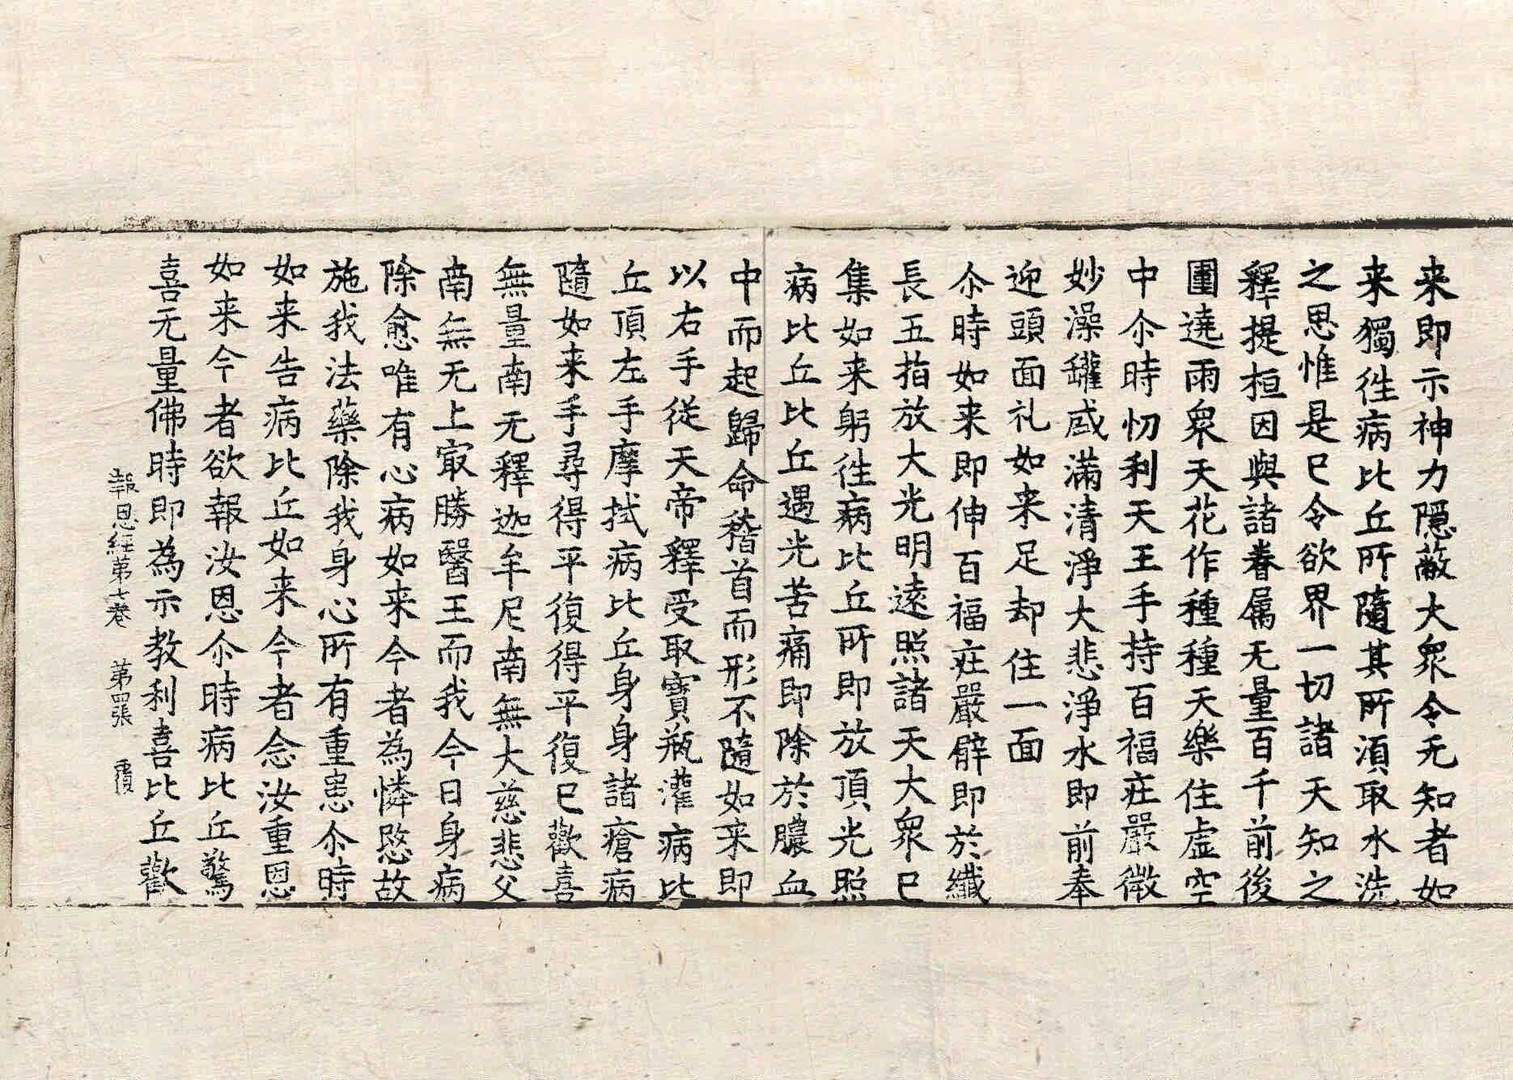 来即示神力隱蔽大衆令无知者如
来獨徃病比丘所隨其所湏取水洗
之思惟是已令欲界一切諸天知之
釋提桓因與諸眷属无量百千前後
圍遶雨衆天花作種種天樂住虚空
中尒時忉利天王手持百福庄嚴微
妙澡罐盛滿清淨大悲淨水即前奉
迎頭面礼如来足却住一面
尒時如来即伸百福庄嚴臂即於纖
長五指放大光明遠照諸天大衆已
集如来躬徃病比丘所即放頂光照
病比丘比丘遇光苦痛即除於膿血
中而起歸命稽首而形不隨如来即
以右手從天帝釋受取寶瓶灌病比
丘頂左手摩拭病比丘身身諸瘡病
隨如来手尋得平復得平復已歡喜
無量南无釋迦牟尼南無大慈悲父
南無无上㝡勝醫王而我今日身病
除愈唯有心病如来今者為憐愍故
施我法藥除我身心所有重恚尒時
如来告病比丘如来今者念汝重恩
如来今者欲報汝恩尒時病比丘驚
喜无量佛時即為示教利喜比丘歡
報恩経第七巻 第四張 覆